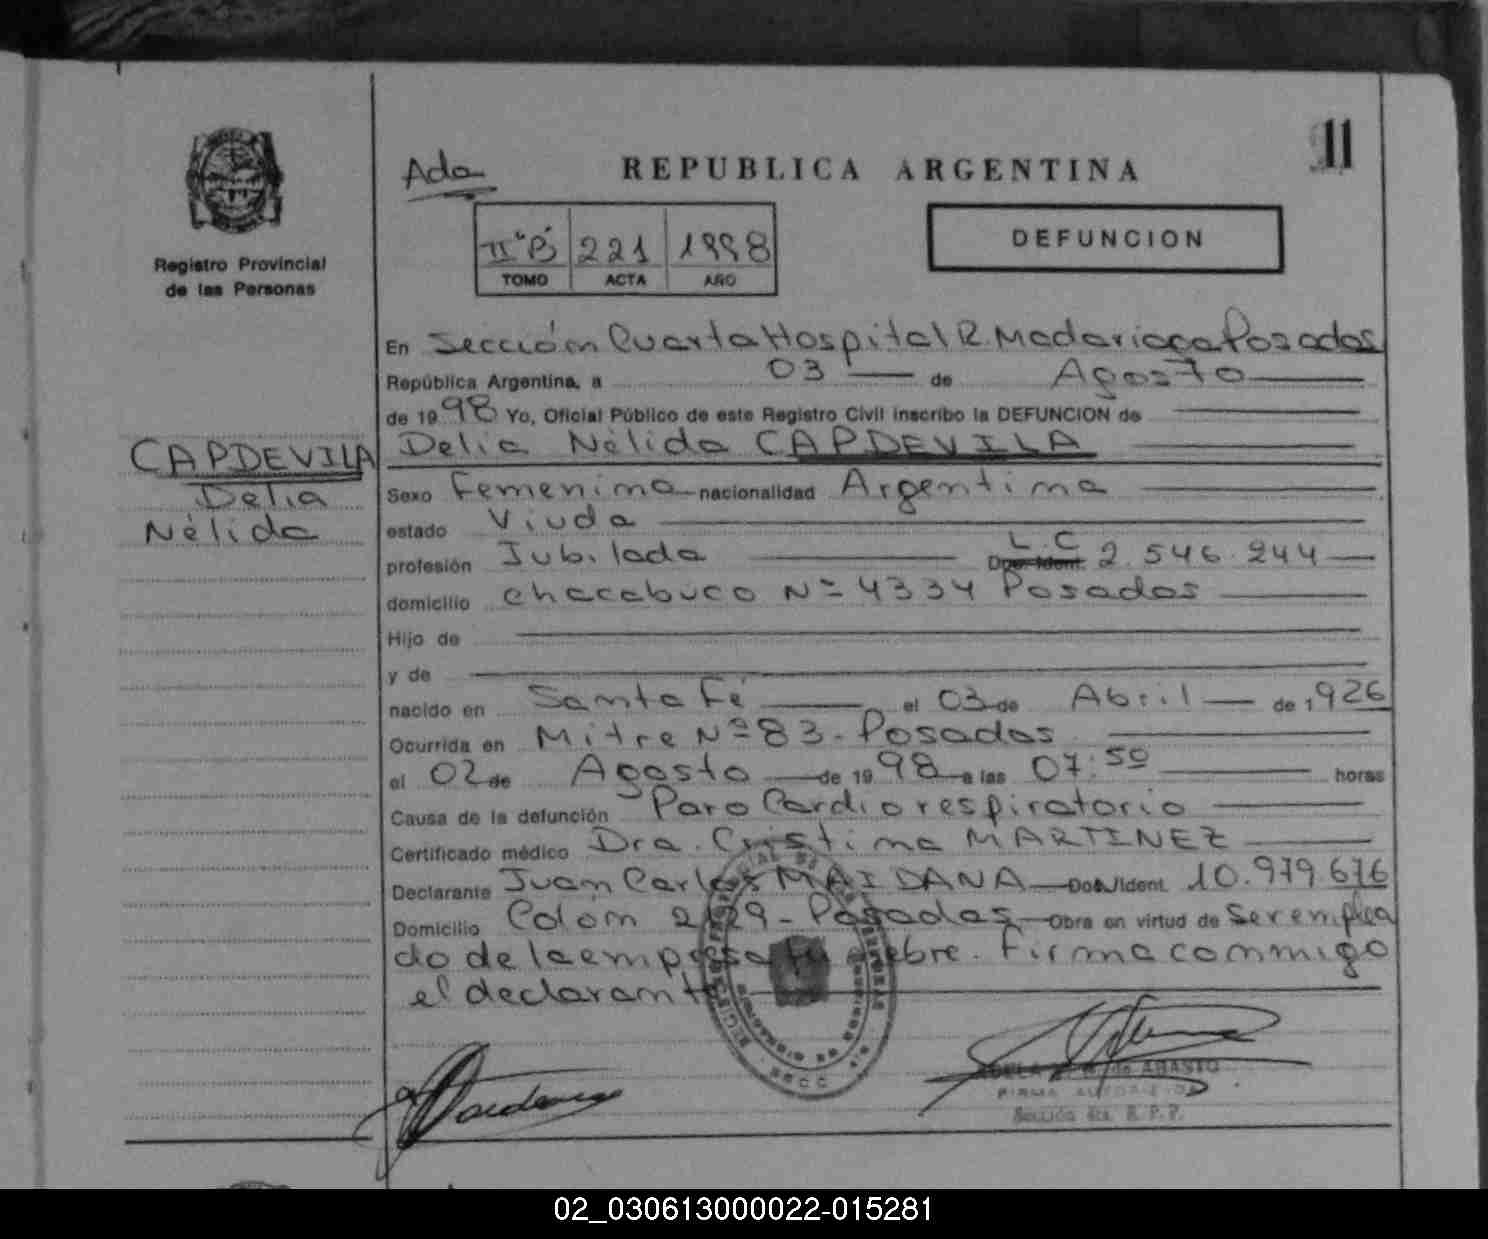 11
Ada
REPUBLICA ARGENTINA
II°B 221 1998
TOMO ACTA AÑO
DEFUNCION
Registro Provincial
de las Personas
CAPDEVILA
Delia
Nélida
En Sección Cuarta Hospital R. Madariaga Posadas
República Argentina, a 03 de Agosto
de 1998 Yo, Oficial Público de este Registro Civil inscribo la DEFUNCION de
Delia Nélida CAPDEVILA
Sexo Femenina nacionalidad Argentina
estado Viuda
profesión Jubilada L.C Doc. Ident. 2.546.244
domicilio Chacabuco Nº 4334 Posadas
Hijo de
y de
nacido en Santa Fé el 03 de Abril de 1926
Ocurrida en Mitre Nº 83 - Posadas
el 02 de Agosto de 1998 a las 07:50 horas
Causa de la defunción Paro Cardiorespiratorio
Certificado médico Dra. Cristina MARTINEZ
Declarante Juan Carlos MAIDANA Doc./Ident. 10.979.676
Domicilio Colón - Posadas Obra en virtud de Ser emplea
do de la empresa fúnebre. Firma conmigo
el declarante
de ABASTO
FIRMA AUTORIZADA
Sección 4ta. R.P.P.
02_030613000022-015281